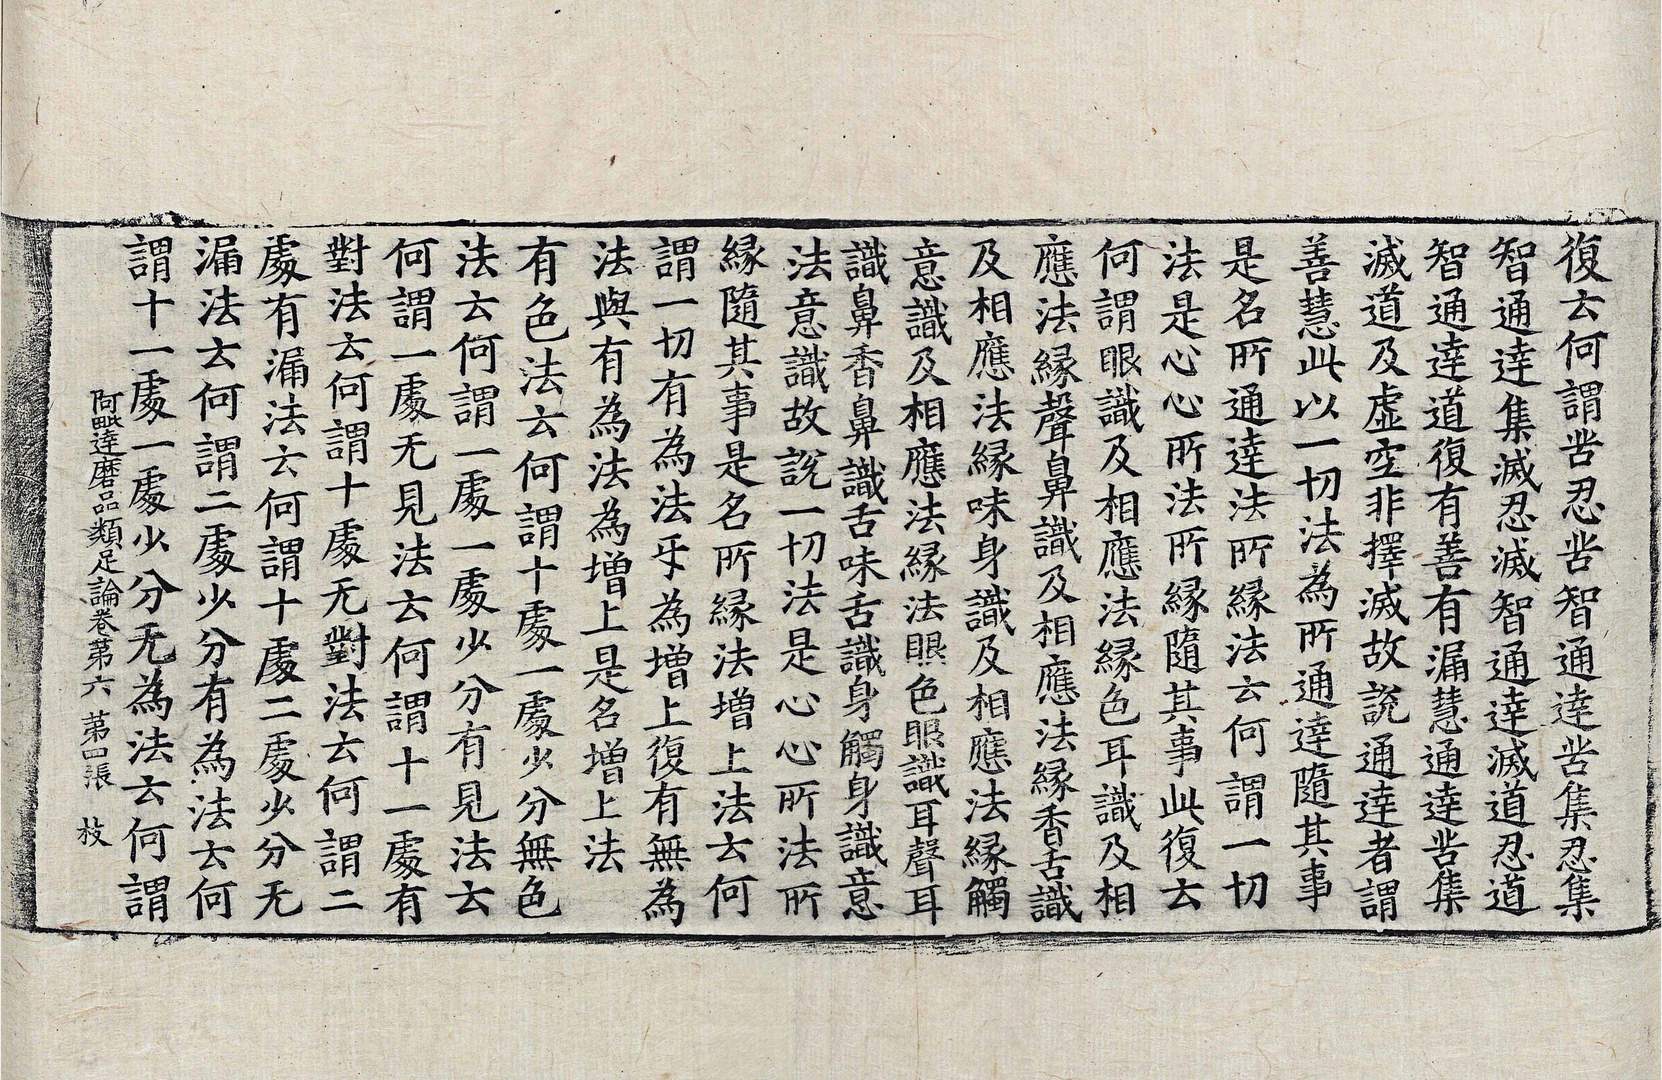 復云何謂苦忍苦智通達苦集忍集
智通達集滅忍滅智通達滅道忍道
智通達道復有善有漏慧通達苦集
滅道及虛空非擇滅故說通達者謂
善慧此以一切法為所通達隨其事
是名所通達法所緣法云何謂一切
法是心心所法所緣隨其事此復云
何謂眼識及相應法緣色耳識及相
應法緣聲鼻識及相應法緣香舌識
及相應法緣味身識及相應法緣觸
意識及相應法緣法眼色眼識耳聲耳
識鼻香鼻識舌味舌識身觸身識意
法意識故說一切法是心心所法所
緣隨其事是名所緣法增上法云何
謂一切有為法乎為增上復有無為
法與有為法為增上是名增上法
有色法云何謂十處一處少分無色
法云何謂一處一處少分有見法云
何謂一處无見法云何謂十一處有
對法云何謂十處无對法云何謂二
處有漏法云何謂十處二處少分无
漏法云何謂二處少分有為法云何
謂十一處一處少分无為法云何謂
阿毗達磨品類足論卷第六 第四張 枝